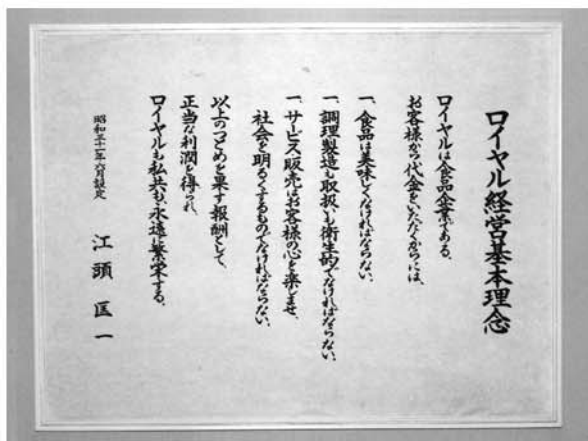 ロイヤル経営基本理念
ロイヤルは食品企業である、
お客様から代金をいただくからには、
一、食品は美味しくなければならない、
一、調理製造も取扱いも衛生的でなければならない、
一、サービス販売はお客様の心を楽しませ、
社会を明るくするものでなければならない、
以上のつとめを果す報酬として、
正当な利潤を得られ、
ロイヤルも私共も永遠に繁栄する、
昭和三十一年六月設定
江頭匡一